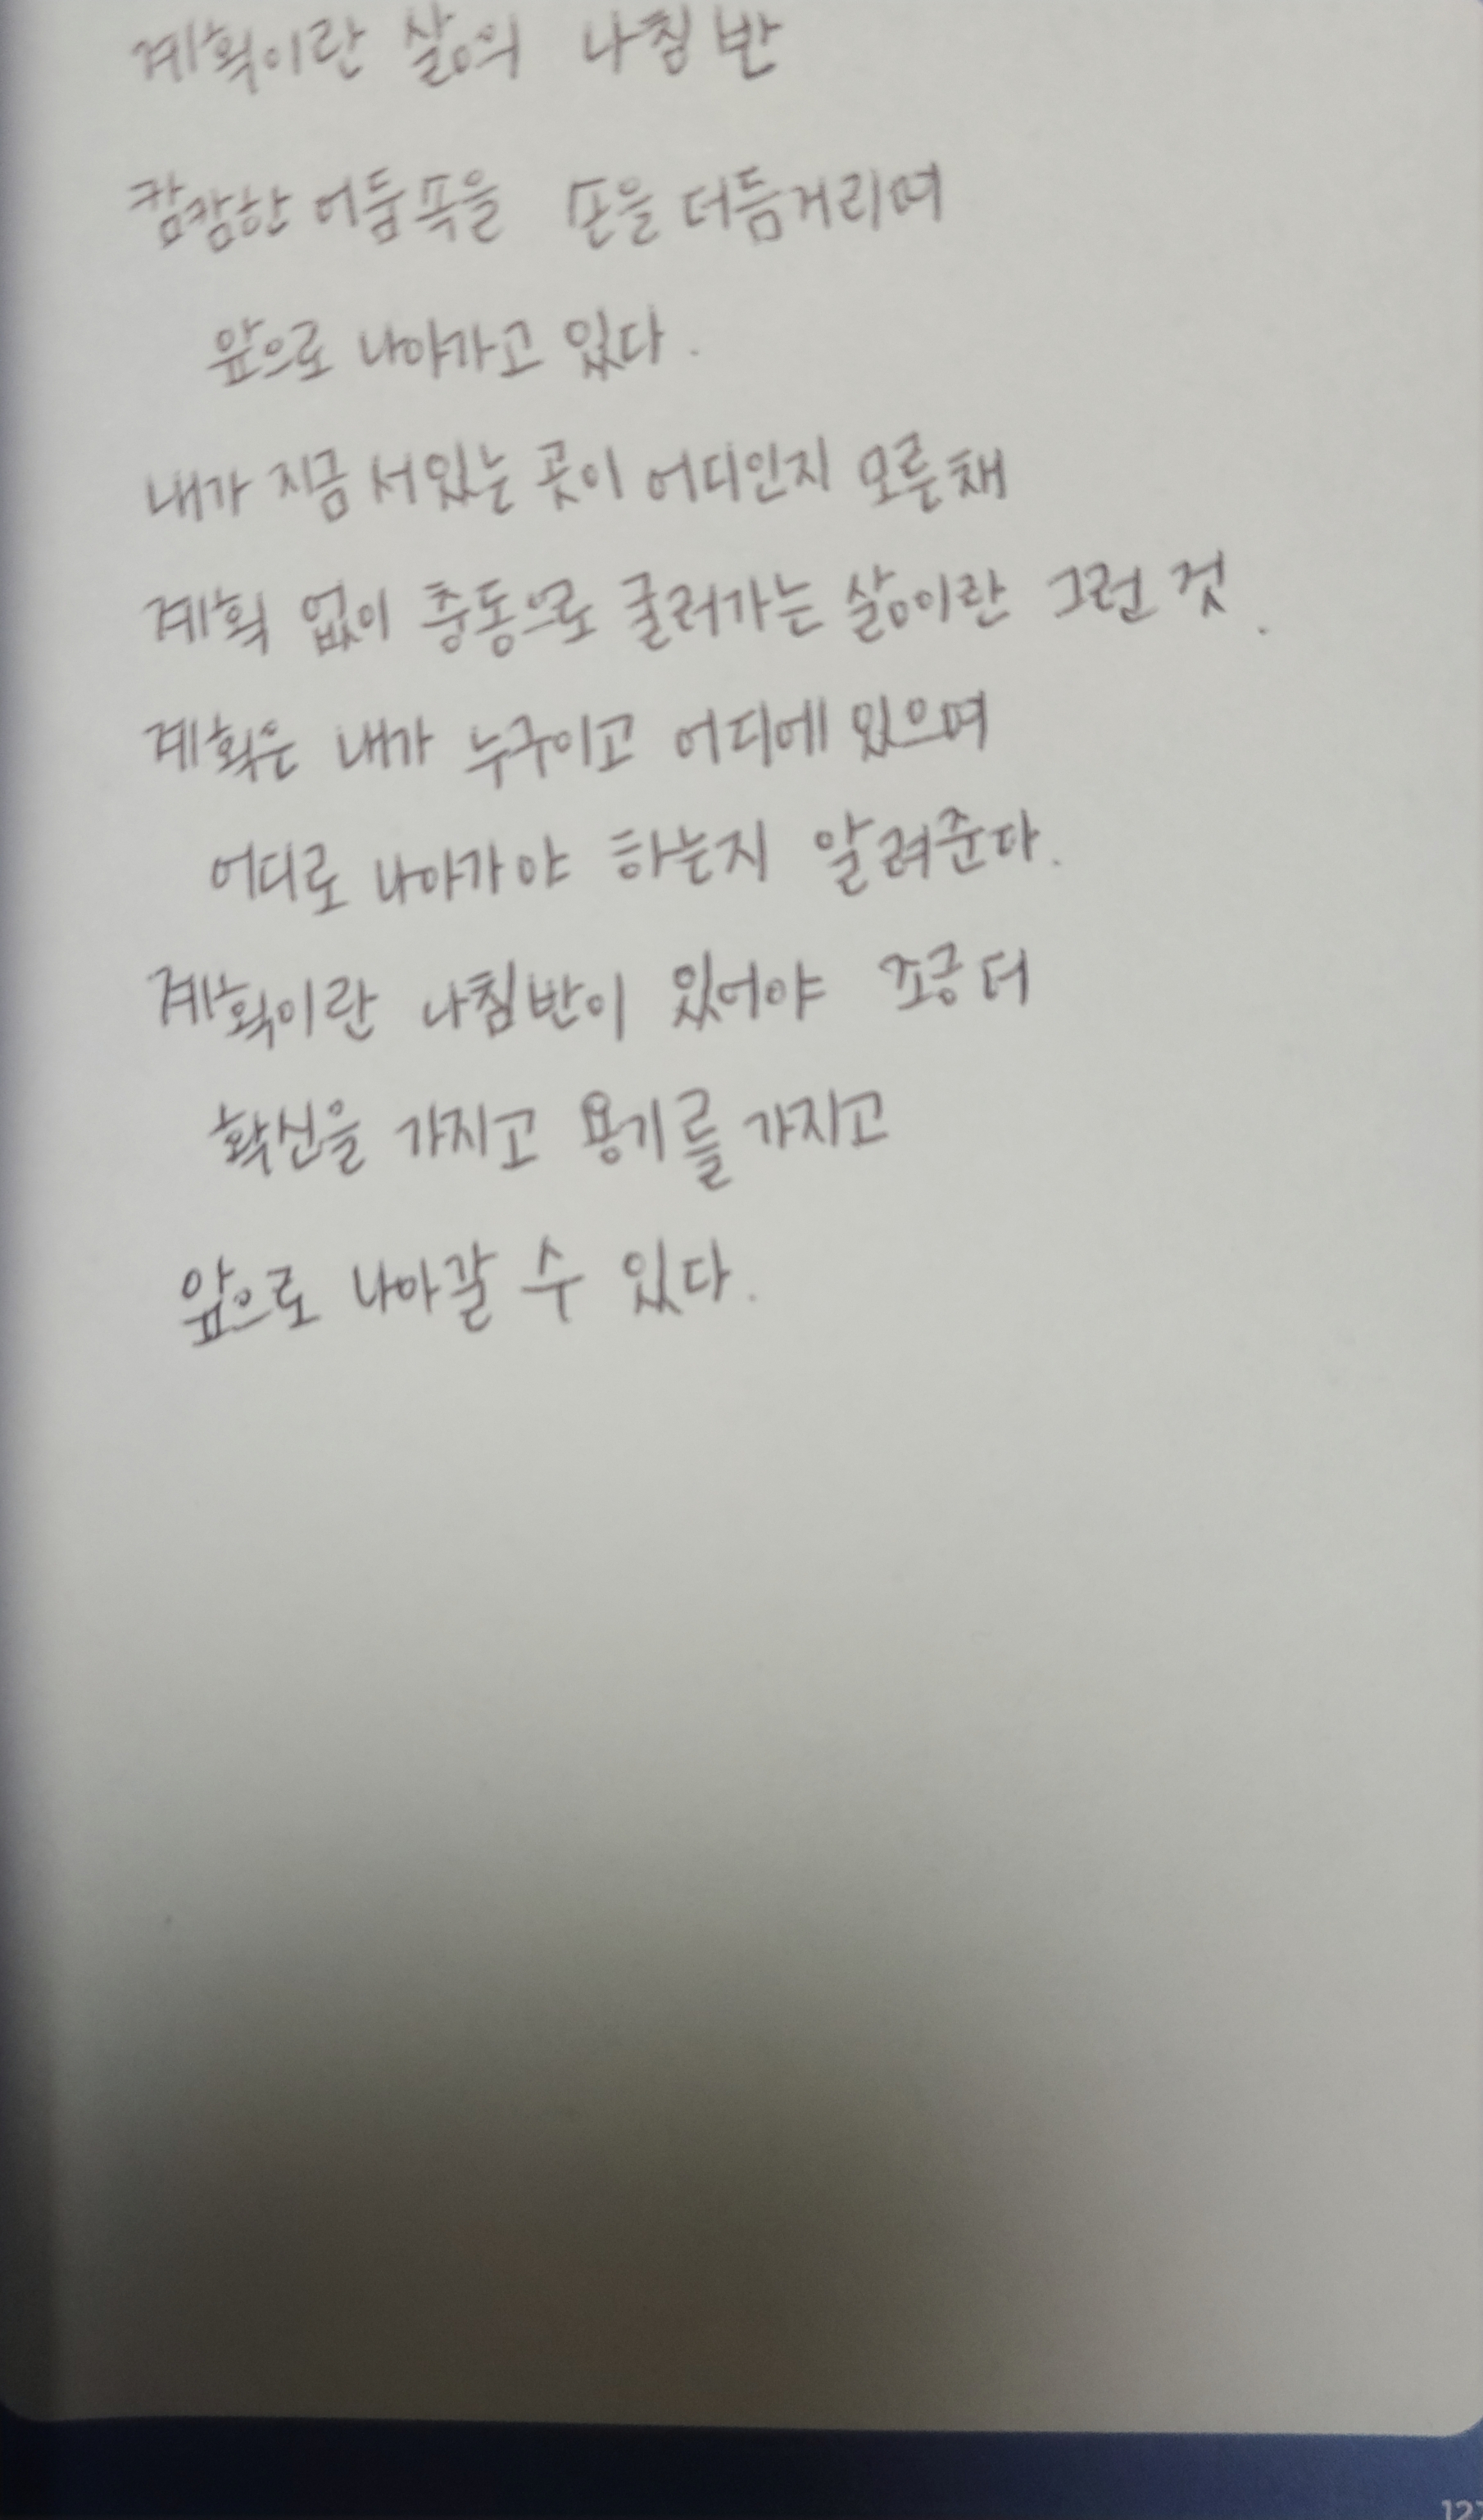 계획이란 삶의 나침반
캄캄한 어둠속을 손을 더듬거리며
앞으로 나아가고 있다.
내가 지금 서있는 곳이 어디인지 모른채
계획 없이 충동으로 굴러가는 삶이란 그런 것.
계획은 내가 누구이고 어디에 있으며
어디로 나아가야 하는지 알려준다.
계획이란 나침반이 있어야 조금 더
확신을 가지고 용기를 가지고
앞으로 나아갈 수 있다.